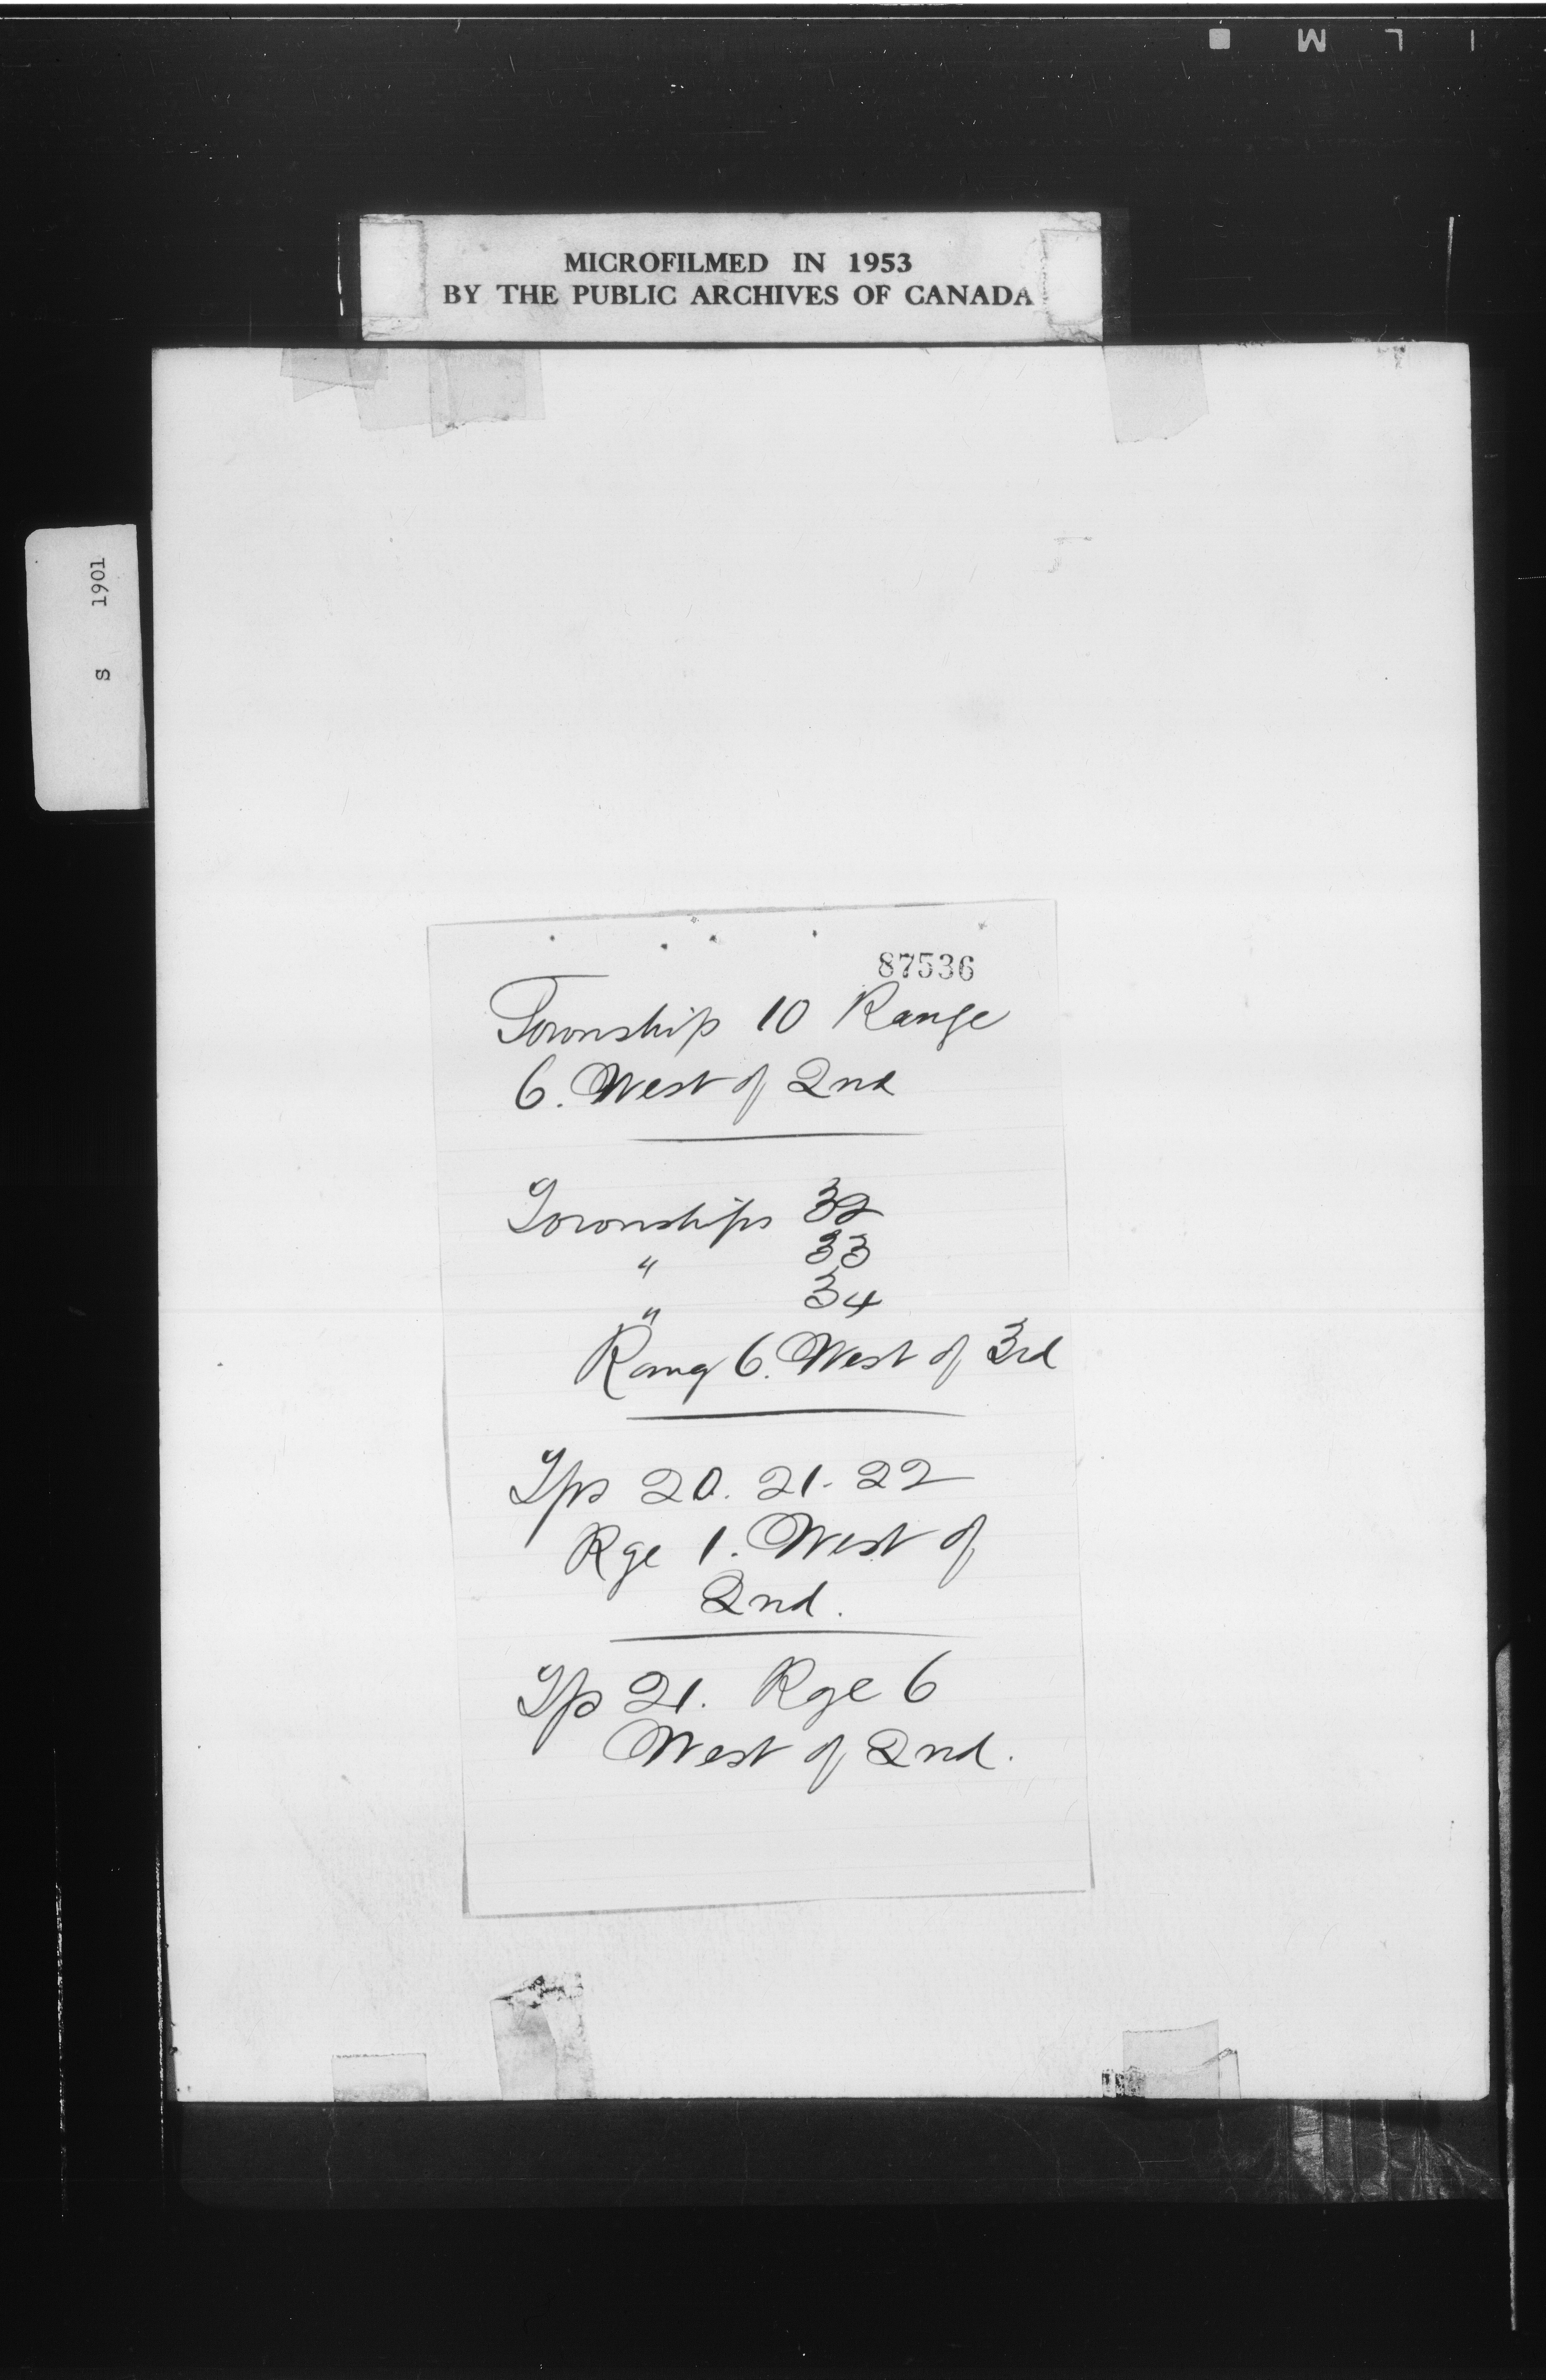 MICROFILMED IN 1953
BY THE PUBLIC ARCHIVES OF CANADA
S 1901
87536
Township 10 Range
6. West of 2nd
Townships 32
" 33
" 34
Rang 6. West of 3rd
Tps 20. 21. 22
Rge 1. West of
2nd.
Tp 21. Rge 6
West of 2nd.